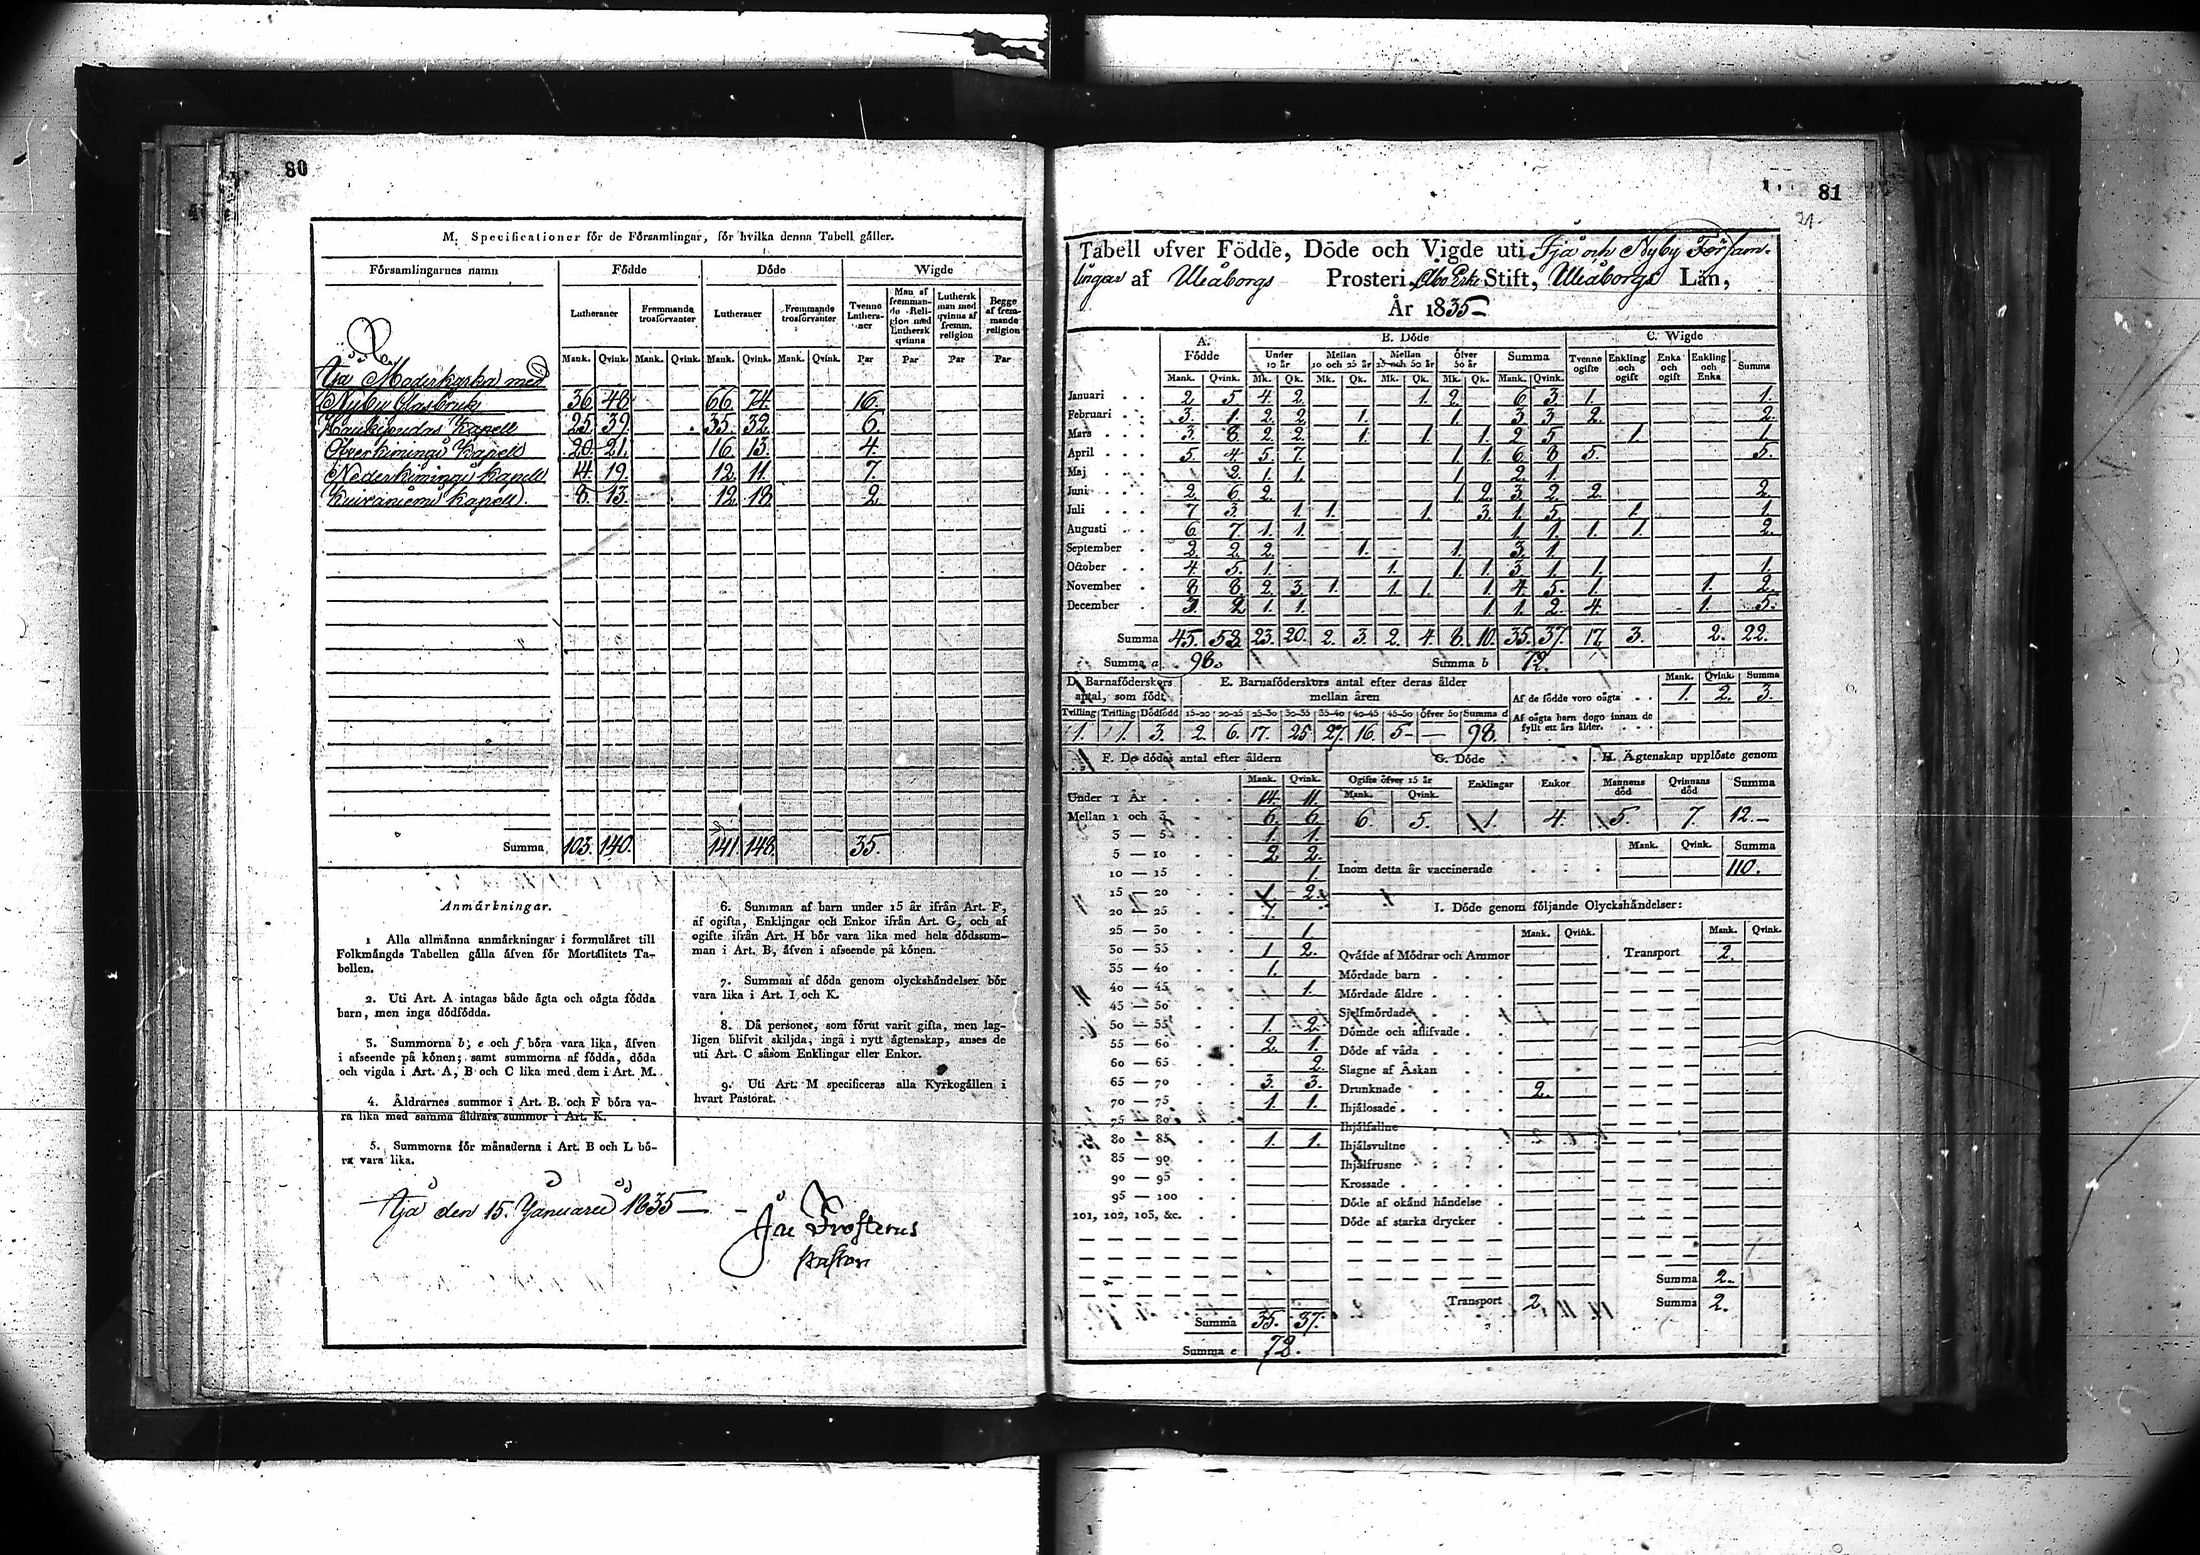 80
M. Specificationer för de Församlingar, för hvilka denna Tabell gäller.
Församlingarnes namn Födde Döde Wigde
Lutheraner Fremmande trosförvanter Lutheraner Fremmande trosförvanter Tvenne Lutheraner Man af fremmande Religion med Luthersk qvinna Luthersk man med qvinna af fremm. religion Begge af fremmande religion
Mank. Qvink. Mank. Qvink. Mank. Qvink. Mank. Qvink. Par Par Par Par
Ijå Moderkyrka med
Nyby Glasbruk 36. 48. 66. 74. 16.
Haukipudas Kapell 25. 39. 35. 32. 6.
Öfverkimingi Kapell 20. 21. 16. 13. 4.
Nederkimingi Kapell 14. 19. 12. 11. 7.
Kuivaniemi Kapell 8. 13. 12. 18. 2.
Summa 103. 140. 141. 148. 35.
Anmärkningar.
1 Alla allmänna anmärkningar i formuläret till
Folkmängds Tabellen gälla äfven för Mortalitets Ta-
bellen.
2. Uti Art. A intagas både ägta och oägta födda
barn, men inga dödfödda.
3. Summorna b, e och f böra vara lika, äfven
i afseende på könen; samt summorna af födda, döda
och vigda i Art. A, B och C lika med dem i Art. M.
4. Åldrarnes summor i Art. B. och F böra va-
ra lika med samma åldrars summor i Art. K.
5. Summorna för månaderna i Art. B och L bö-
ra vara lika.
6. Summan af barn under 15 år ifrån Art. F,
af ogifta, Enklingar och Enkor ifrån Art. G, och af
ogifte ifrån Art. H bör vara lika med hela dödssum-
man i Art. B, äfven i afseende på könen.
7. Summan af döda genom olyckshändelser bör
vara lika i Art. I och K.
8. Då personer, som förut varit gifta, men lag-
ligen blifvit skiljda, ingå i nytt ägtenskap, anses de
uti Art. C såsom Enklingar eller Enkor.
9. Uti Art. M specificeras alla Kyrkogällen i
hvart Pastorat.
Ijå den 15. Januarii 1835
Frosterus
81
21
Tabell öfver Födde, Döde och Vigde uti Ijå och Nyby Församlingar
af Uleåborgs Prosteri, Åbo Erke Stift, Uleåborgs Län,
År 1835
A. Födde B. Döde C. Wigde
Under 10 år Mellan 10 och 25 år Mellan 25 och 50 år Öfver 50 år Summa Tvenne ogifte Enkling och ogift Enka och ogift Enkling och Enka Summa
Mank. Qvink. Mk. Qk. Mk. Qk. Mk. Qk. Mk. Qk. Mank. Qvink.
Januari 2. 5. 4. 2. 1. 2. 6. 3. 1. 1.
Februari 3. 1. 2. 2. 1. 1. 3. 3. 2. 2.
Mars 3. 8. 2. 2. 1. 1. 1. 2. 5. 1. 1.
April 5. 4. 5. 7. 1. 1. 6. 8. 5. 5.
Maj 2. 1. 1. 1. 2. 1.
Juni 2. 6. 2. 1. 2. 3. 2. 2. 2.
Juli 7. 3. 1. 1. 1. 3. 1. 5. 1. 1.
Augusti 6. 7. 1. 1. 1. 1. 1. 1. 2.
September 2. 2. 2. 1. 1. 3. 1.
October 4. 5. 1. 1. 1. 1. 3. 1. 1. 1.
November 8. 8. 2. 3. 1. 1. 1. 1. 4. 5. 1. 1. 2.
December 3. 2. 1. 1. 1. 1. 2. 4. 1. 5.
Summa 45. 53. 23. 20. 2. 3. 2. 4. 8. 10. 35. 37. 17. 3. 2. 22.
Summa a 98. Summa b 72.
D. Barnaföderskors antal, som födt E. Barnaföderskors antal efter deras ålder mellan åren
Mank. Qvink. Summa
Af de födde voro oägta 1. 2. 3.
Af oägta barn dogo innan de fyllt ett års ålder.
Tvilling Trilling Dödfödd 15-20 20-25 25-30 30-35 35-40 40-45 45-50 Öfver 50 Summa d
1. 1. 3. 2. 6. 17. 25. 27. 16. 5 — 98.
F. De dödes antal efter åldern
Mank. Qvink.
Under 1 År 14. 11.
Mellan 1 och 3 6. 6.
3 — 5 1. 1.
5 — 10 2. 2.
10 — 15 1.
15 — 20 1. 2.
20 — 25 1.
25 — 30 1.
30 — 35 1. 2.
35 — 40 1.
40 — 45 1.
45 — 50
50 — 55 1. 2.
55 — 60 2. 1.
60 — 65 2.
65 — 70 3. 3.
70 — 75 1. 1.
75 — 80
80 — 85 1. 1.
85 — 90
90 — 95
95 — 100
101, 102, 103, &c.
Summa 35. 37.
Summa e 72.
G. Döde H. Ägtenskap upplöste genom
Ogifte öfver 15 år Enklingar Enkor Mannens död Qvinnans död Summa
Mank. Qvink.
6. 5. 1. 4. 5. 7. 12.
Mank. Qvink. Summa
Inom detta år vaccinerade 110.
I. Döde genom följande Olyckshändelser:
Mank. Qvink. Mank. Qvink.
Qväfde af Mödrar och Ammor Transport 2.
Mördade barn
Mördade äldre
Sjelfmördade
Dömde och aflifvade
Döde af våda
Slagne af Åskan
Drunknade 2.
Ihjälosade
Ihjälfallne
Ihjälsvultne
Ihjälfrusne
Krossade
Döde af okänd händelse
Döde af starka drycker
Summa 2.
Transport 2. Summa 2.